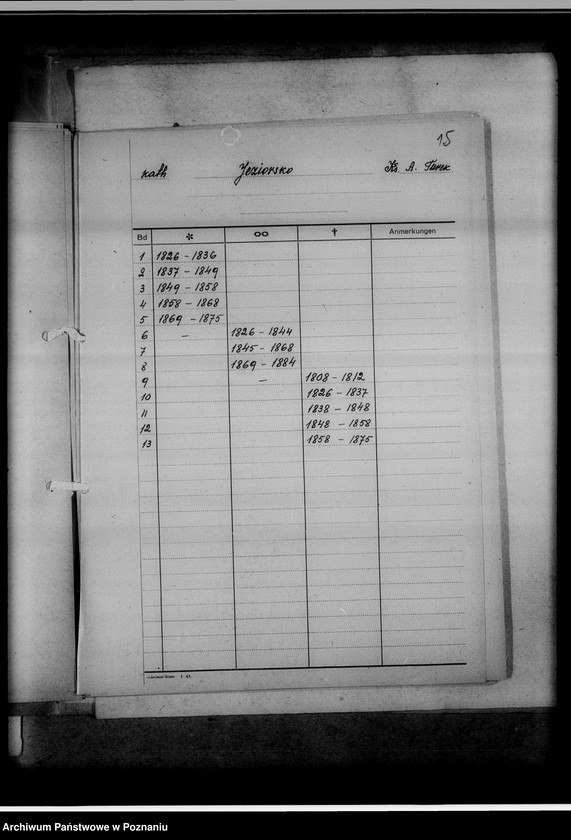 15
kath Jeziorsko Ks A. Turek
Bd * oo † Anmerkungen
1 1826 - 1836
2 1837 - 1849
3 1849 - 1858
4 1858 - 1868
5 1869 - 1875
6 — 1826 - 1844
7 1845 - 1868
8 1869 - 1884
9 — 1808 - 1812
10 1826 - 1837
11 1838 - 1848
12 1848 - 1858
13 1858 - 1875
Archiwum Państwowe w Poznaniu